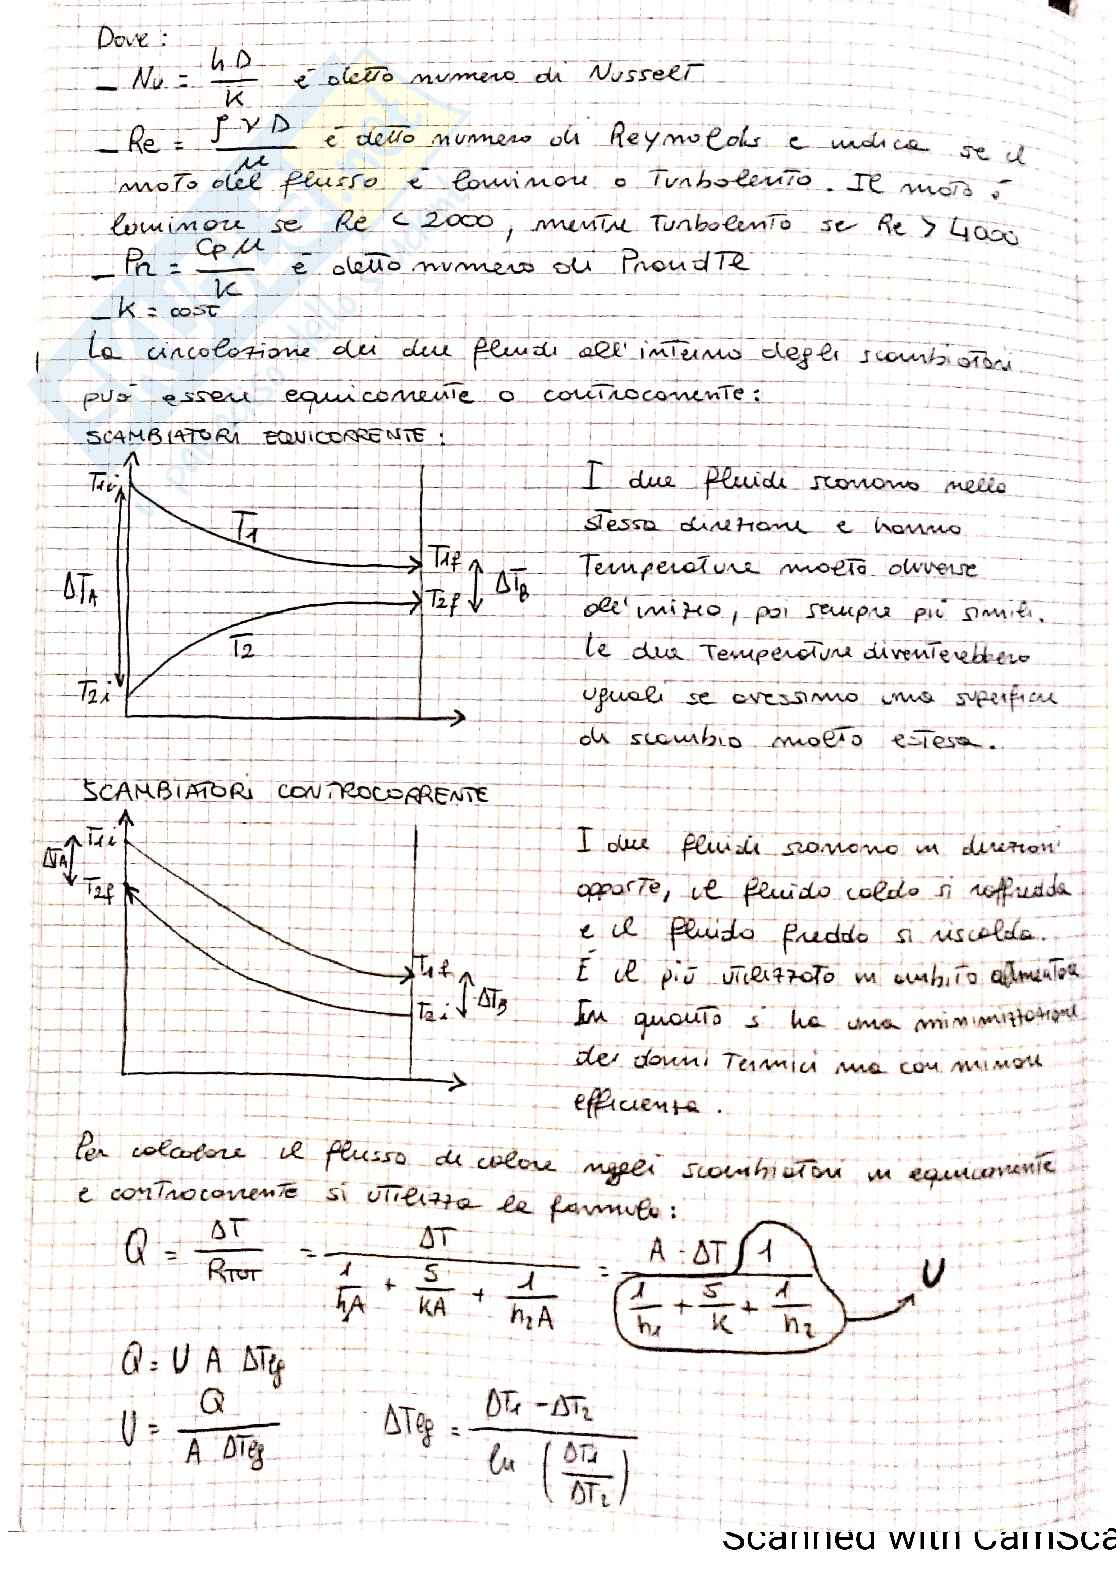 Dove:
- Nu = hD/K è detto numero di Nusselt
- Re = ρvD/μ è detto numero di Reynolds e indica se il
moto del flusso è laminare o turbolento. Il moto è
laminare se Re < 2000, mentre turbolento se Re > 4000
- Pr = Cp μ/K è detto numero di Prandtl
- K = cost
La circolazione dei due fluidi all'interno degli scambiatori
può essere equicorrente o controcorrente:
SCAMBIATORI EQUICORRENTE:
T1i
T1
T1f
ΔTA
ΔTB
T2f
T2
T2i
I due fluidi scorrono nella
stessa direzione e hanno
temperature molto diverse
all'inizio, poi sempre più simili.
Le due temperature diventerebbero
uguali se avessimo una superficie
di scambio molto estesa.
SCAMBIATORI CONTROCORRENTE
T1i
ΔTA
T2f
T1f
ΔTB
T2i
I due fluidi scorrono in direzioni
opposte, il fluido caldo si raffredda
e il fluido freddo si riscalda.
È il più utilizzato in ambito alimentare
In quanto si ha una minimizzazione
dei danni termici ma con minore
efficienza.
Per calcolare il flusso di calore negli scambiatori in equicorrente
e controcorrente si utilizza la formula:
Q = ΔT/RTOT = ΔT/(1/h1A + S/KA + 1/h2A) = A · ΔT 1/(1/h1 + S/K + 1/h2) U
Q = U A ΔTlg
U = Q/(A ΔTlg) ΔTlg = (ΔT1 - ΔT2)/ln(ΔT1/ΔT2)
Scanned with CamSca